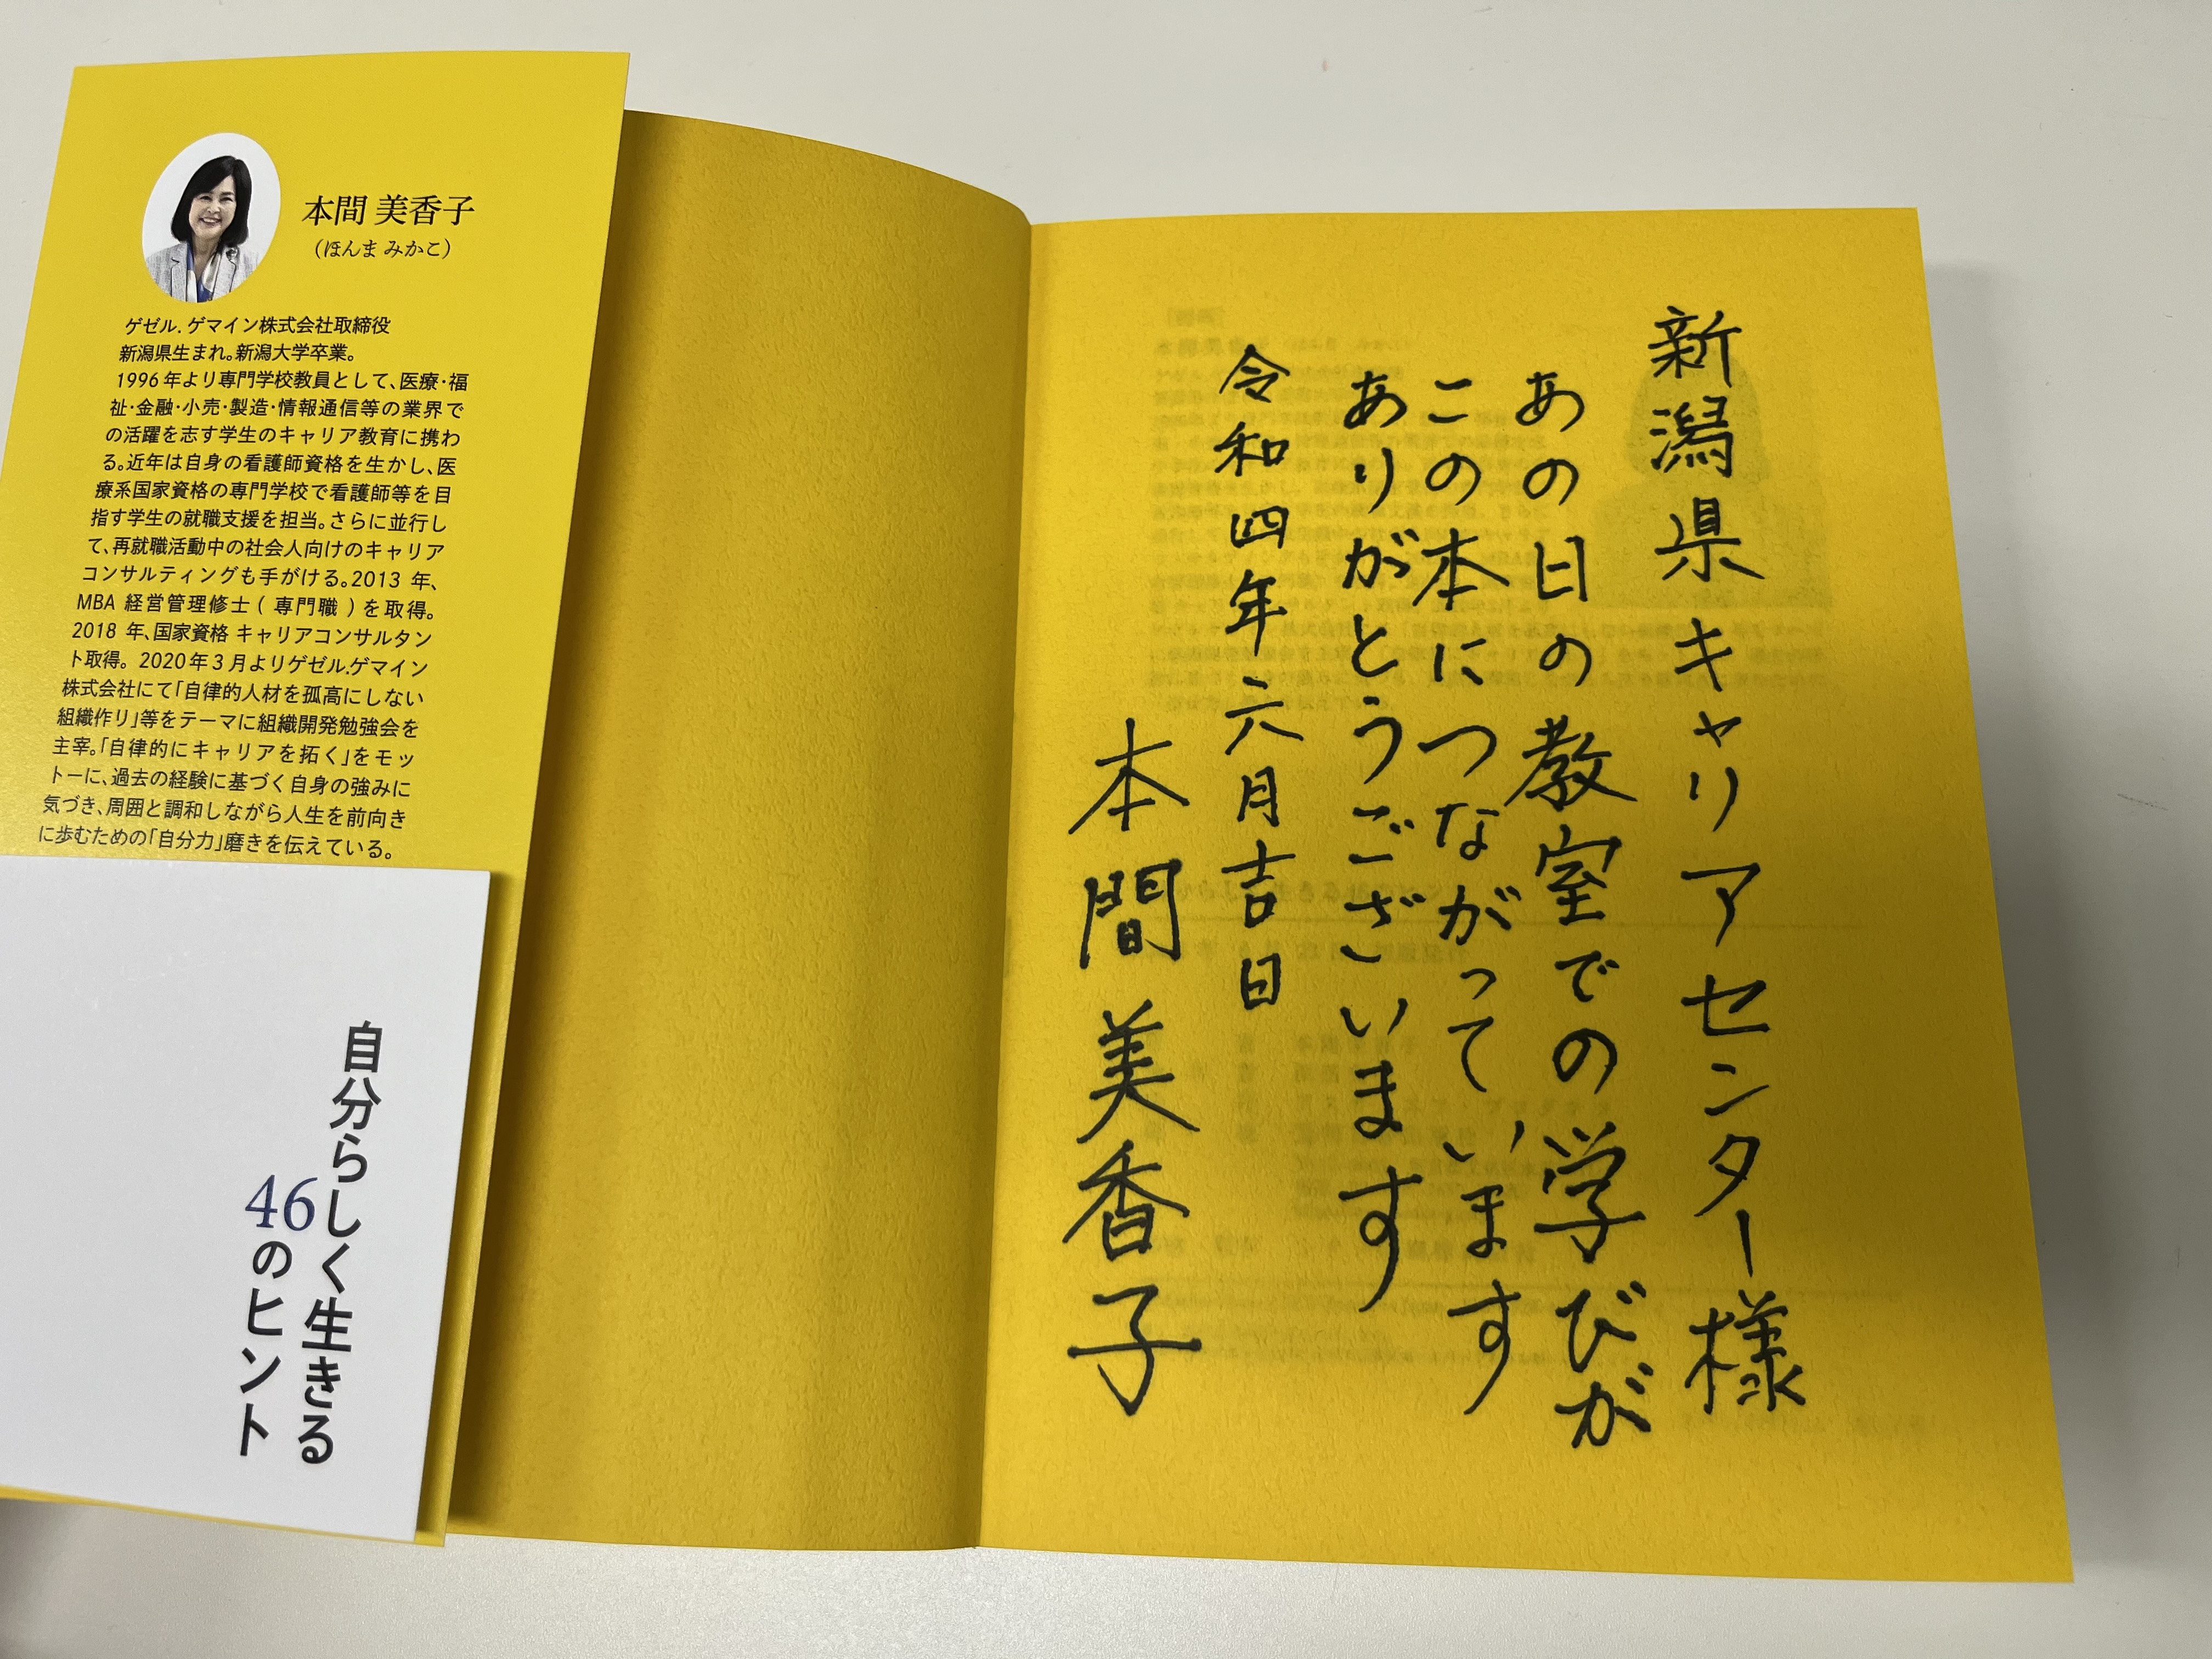 本間 美香子
（ほんま みかこ）
ゲゼル.ゲマイン株式会社取締役
新潟県生まれ。新潟大学卒業。
1996年より専門学校教員として、医療・福
祉・金融・小売・製造・情報通信等の業界で
の活躍を志す学生のキャリア教育に携わ
る。近年は自身の看護師資格を生かし、医
療系国家資格の専門学校で看護師等を目
指す学生の就職支援を担当。さらに並行し
て、再就職活動中の社会人向けのキャリア
コンサルティングも手がける。2013 年、
MBA 経営管理修士( 専門職 )を取得。
2018 年、国家資格 キャリアコンサルタン
ト取得。 2020年3月よりゲゼル.ゲマイン
株式会社にて「自律的人材を孤高にしない
組織作り」等をテーマに組織開発勉強会を
主宰。「自律的にキャリアを拓く」をモッ
トーに、過去の経験に基づく自身の強みに
気づき、周囲と調和しながら人生を前向き
に歩むための「自分力」磨きを伝えている。
自分らしく生きる
46のヒント
新潟県キャリアセンター様
あの日の教室での学びが
この本につながっています
ありがとうございます
令和四年六月吉日
本間美香子